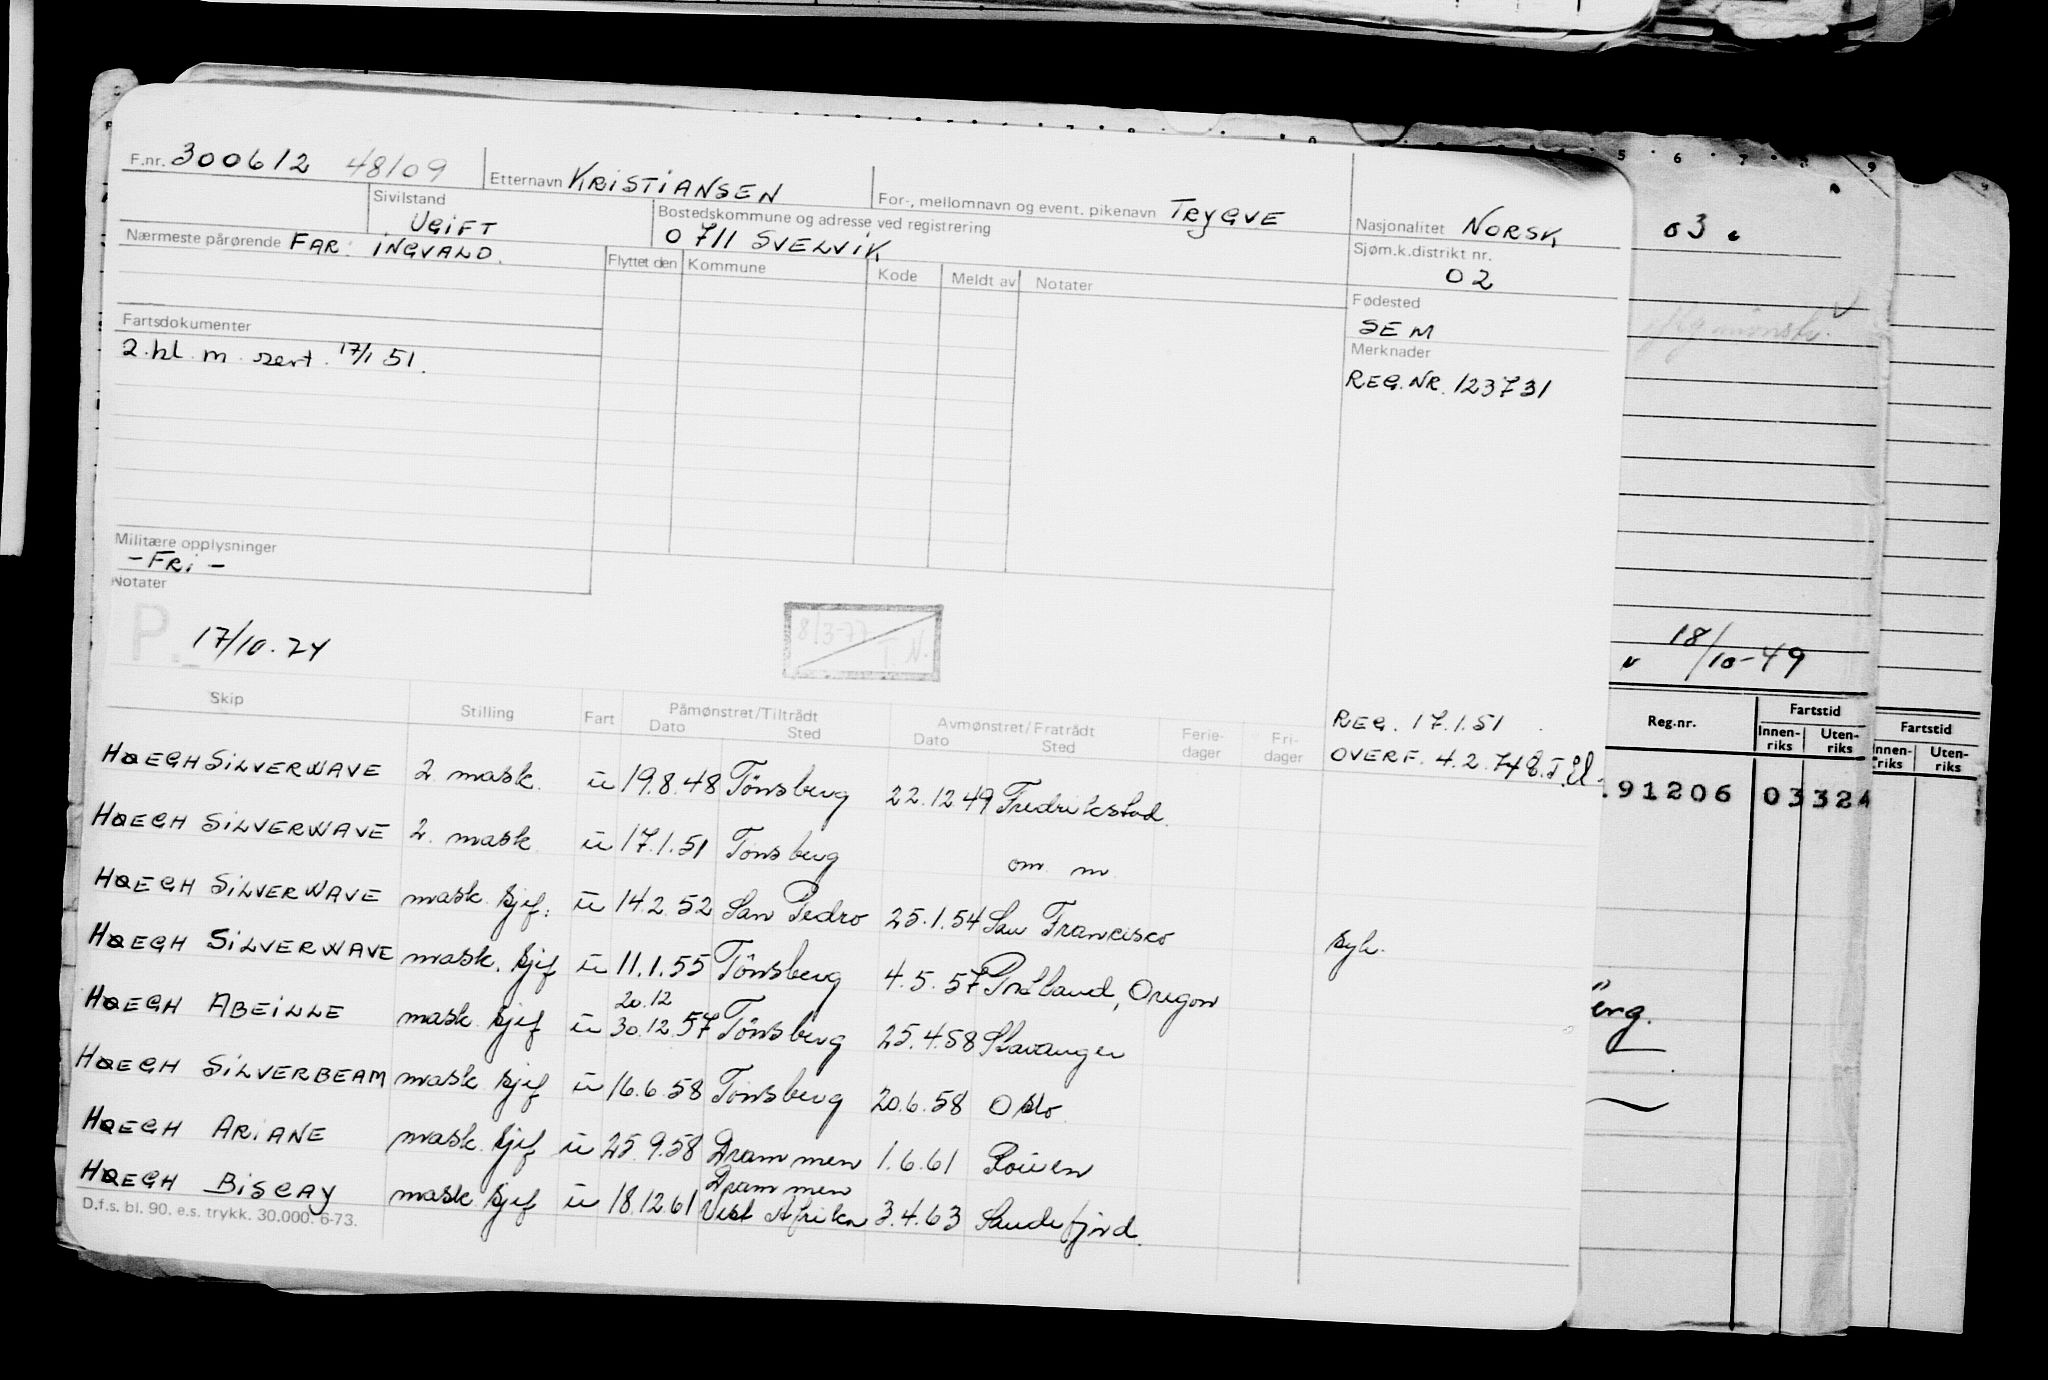 F.nr. 300612 48109 Etternavn KRISTIANSEN For-, mellomnavn og event. pikenavn TRYGVE Nasjonalitet NORSK
Sivilstand UGIFT Bostedskommune og adresse ved registrering 0711 SVELVIK Sjøm.k.distrikt nr. 02
Nærmeste pårørende FAR: INGVALD. Flyttet den Kommune Kode Meldt av Notater
Fødested
SEM
Fartsdokumenter
2. kl. m. sert. 17/1 51.
Merknader
REG.NR. 123731
Militære opplysninger
- FRI -
Notater
P. 17/10.74
8/3-77 T N.
REG. 17.1.51
OVERF. 4.2.74
Skip Stilling Fart Påmønstret/Tiltrådt Avmønstret/Fratrådt Ferie- Fri-
Dato Sted Dato Sted dager dager
HØEGH SILVERWAVE 2. mask. u 19.8.48 Tönsberg 22.12.49 Fredrikstad.
HØEGH SILVERWAVE 2. mask u 17.1.51 Tönsberg om m
HØEGH SILVERWAVE mask. sjef. u 14.2.52 San Pedro 25.1.54 San Francisco syk.
HØEGH SILVERWAVE mask. sjef u 11.1.55 Tönsberg 4.5.57 Portland, Oregon
20.12
HØEGH ABEILLE mask. sjef u 30.12.57 Tönsberg 25.4.58 Stavanger
HØEGH SILVERBEAM mask sjef u 16.6.58 Tönsberg 20.6.58 Oslo.
HØEGH ARIANE mask. sjef u 25.9.58 Drammen 1.6.61 Rouen
Drammen
HØEGH BISCAY mask sjef u 18.12.61 Vest Afrika 3.4.63 Sandefjord.
D.f.s. bl. 90. e.s. trykk. 30.000. 6-73.
5 6 7 9
03.
18/10-49
Reg.nr. Fartstid
Innen-riks Uten-riks
.91206 03324
erg.
Fartstid
Innen-riks Uten-riks